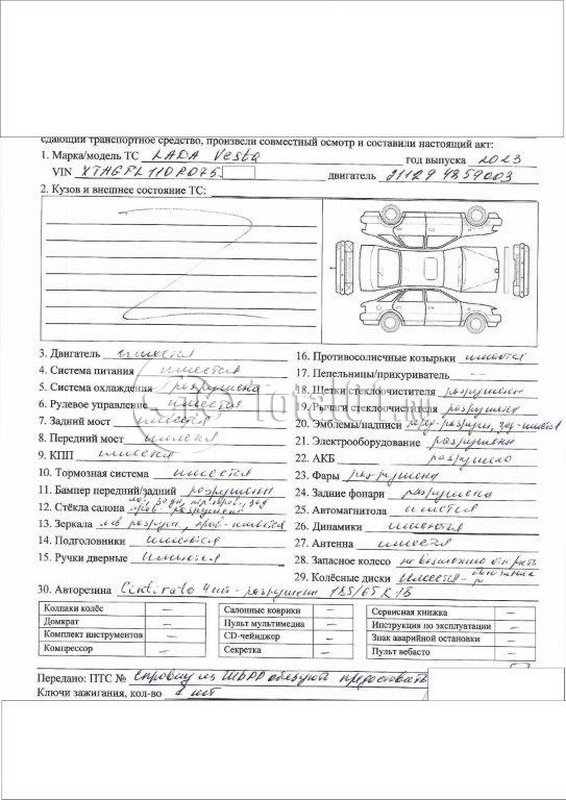 сдающий транспортное средство, произвели совместный осмотр и составили настоящий акт:
1. Марка/модель ТС LADA Vesta год выпуска 2023
VIN XTAGFL110P075 двигатель 21129 4859003
2. Кузов и внешнее состояние ТС:
3. Двигатель имеется
4. Система питания имеется
5. Система охлаждения разрушена
6. Рулевое управление имеется
7. Задний мост имеется
8. Передний мост имеется
9. КПП имеется
10. Тормозная система имеется
11. Бампер передний/задний разрушены
12. Стёкла салона разрушены
13. Зеркала лев разруш, прав-имеется
14. Подголовники имеются
15. Ручки дверные имеются
16. Противосолнечные козырьки имеются
17. Пепельницы/прикуриватель —
18. Щетки стеклоочистителя разрушены
19. Рычаги стеклоочистителя разрушены
20. Эмблемы/надписи перед-разруш, зад-имеется
21. Электрооборудование разрушены
22. АКБ разрушено
23. Фары разрушена
24. Задние фонари разрушена
25. Автомагнитола имеется
26. Динамики имеются
27. Антенна имеется
28. Запасное колесо не возможно
29. Колёсные диски имеется-
30. Авторезина Cinturato 4 шт - разрушены 185/65 R 15
Колпаки колёс —
Домкрат —
Комплект инструментов —
Компрессор —
Салонные коврики —
Пульт мультимедиа —
CD-чейнджер —
Секретка —
Сервисная книжка —
Инструкция по эксплуатации —
Знак аварийной остановки —
Пульт вебасто —
Передано: ПТС № справку из предоставить
Ключи зажигания, кол-во шт